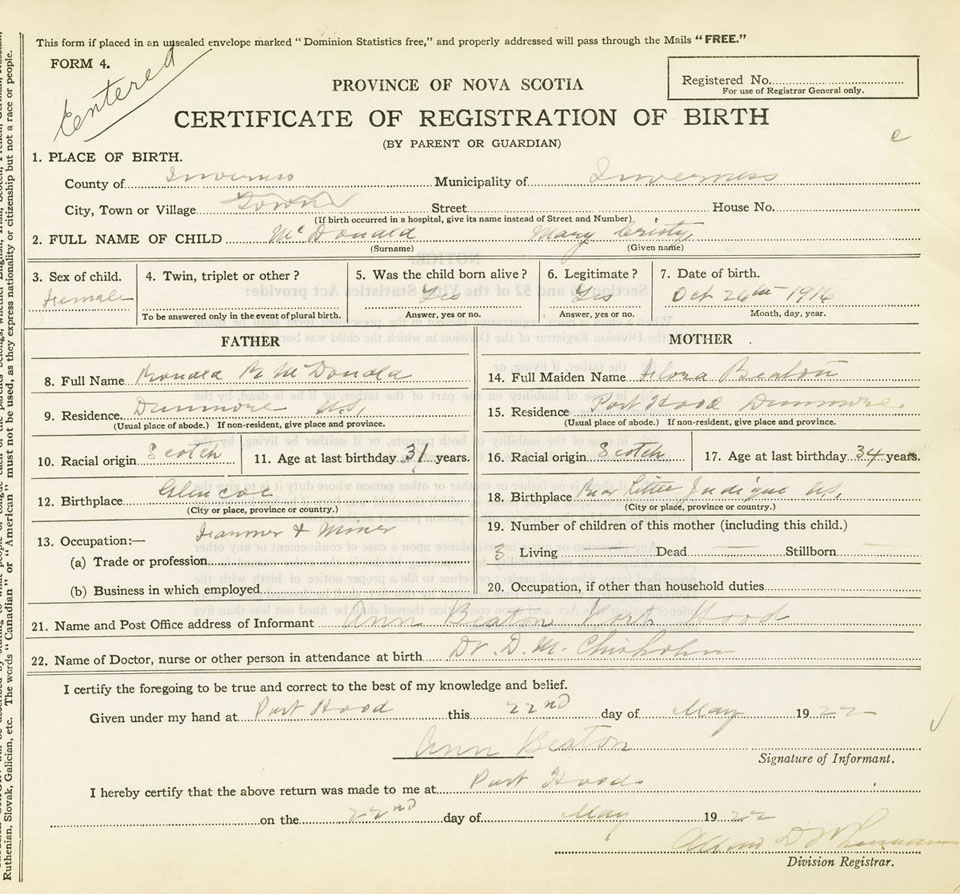 This form if placed in an unsealed envelope marked "Dominion Statistics free," and properly addressed will pass through the Mails "FREE."
FORM 4.
Entered
PROVINCE OF NOVA SCOTIA
Registered No.
For use of Registrar General only.
CERTIFICATE OF REGISTRATION OF BIRTH
(BY PARENT OR GUARDIAN)
1. PLACE OF BIRTH.
County of Inverness Municipality of Inverness
City, Town or Village Town Street House No.
(If birth occurred in a hospital, give its name instead of Street and Number)
2. FULL NAME OF CHILD McDonald Mary Cristy
(Surname) (Given name)
3. Sex of child. 4. Twin, triplet or other? 5. Was the child born alive? 6. Legitimate? 7. Date of birth.
Female Yes Yes Oct 26th 1916
To be answered only in the event of plural birth. Answer, yes or no. Answer, yes or no. Month, day, year.
FATHER
8. Full Name Ronald R McDonald
9. Residence Dunmore N.S.
(Usual place of abode.) If non-resident, give place and province.
10. Racial origin Scotch 11. Age at last birthday 31 years.
12. Birthplace Glencoe
(City or place, province or country.)
13. Occupation:— Farmer & Miner
(a) Trade or profession
(b) Business in which employed
MOTHER
14. Full Maiden Name Flora Beaton
15. Residence Port Hood Dunmore
(Usual place of abode.) If non-resident, give place and province.
16. Racial origin Scotch 17. Age at last birthday 34 years.
18. Birthplace Little Judique N.S.
(City or place, province or country.)
19. Number of children of this mother (including this child.)
3 Living Dead Stillborn
20. Occupation, if other than household duties
21. Name and Post Office address of Informant Ann Beaton Port Hood
22. Name of Doctor, nurse or other person in attendance at birth Dr. D. M. Chisholm
I certify the foregoing to be true and correct to the best of my knowledge and belief.
Given under my hand at Port Hood this 22nd day of May 1922
Ann Beaton
Signature of Informant.
I hereby certify that the above return was made to me at Port Hood
on the 22nd day of May 1922
Division Registrar.
Ruthenian, Slovak, Galician, etc. The words "Canadian" or "American" must not be used, as they express nationality or citizenship but not a race or people.